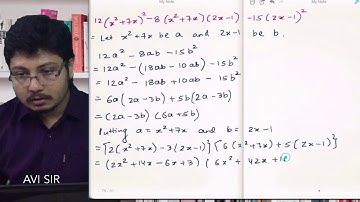 12(x²+7x)²-8(x²+7x)(2x-1) -15(2x-1)²
= Let x²+7x be a and 2x-1 be b.
12a² - 8ab - 15b²
= 12a² - (18ab - 10ab) - 15b²
= 12a² - 18ab + 10ab - 15b²
= 6a(2a-3b) + 5b(2a-3b)
= (2a-3b) (6a+5b)
Putting a = x²+7x and b = 2x-1
= [2(x²+7x) - 3(2x-1)] [6(x²+7x) + 5(2x-1)²]
= (2x² + 14x - 6x + 3) (6x² + 42x + 10
AVI SIR